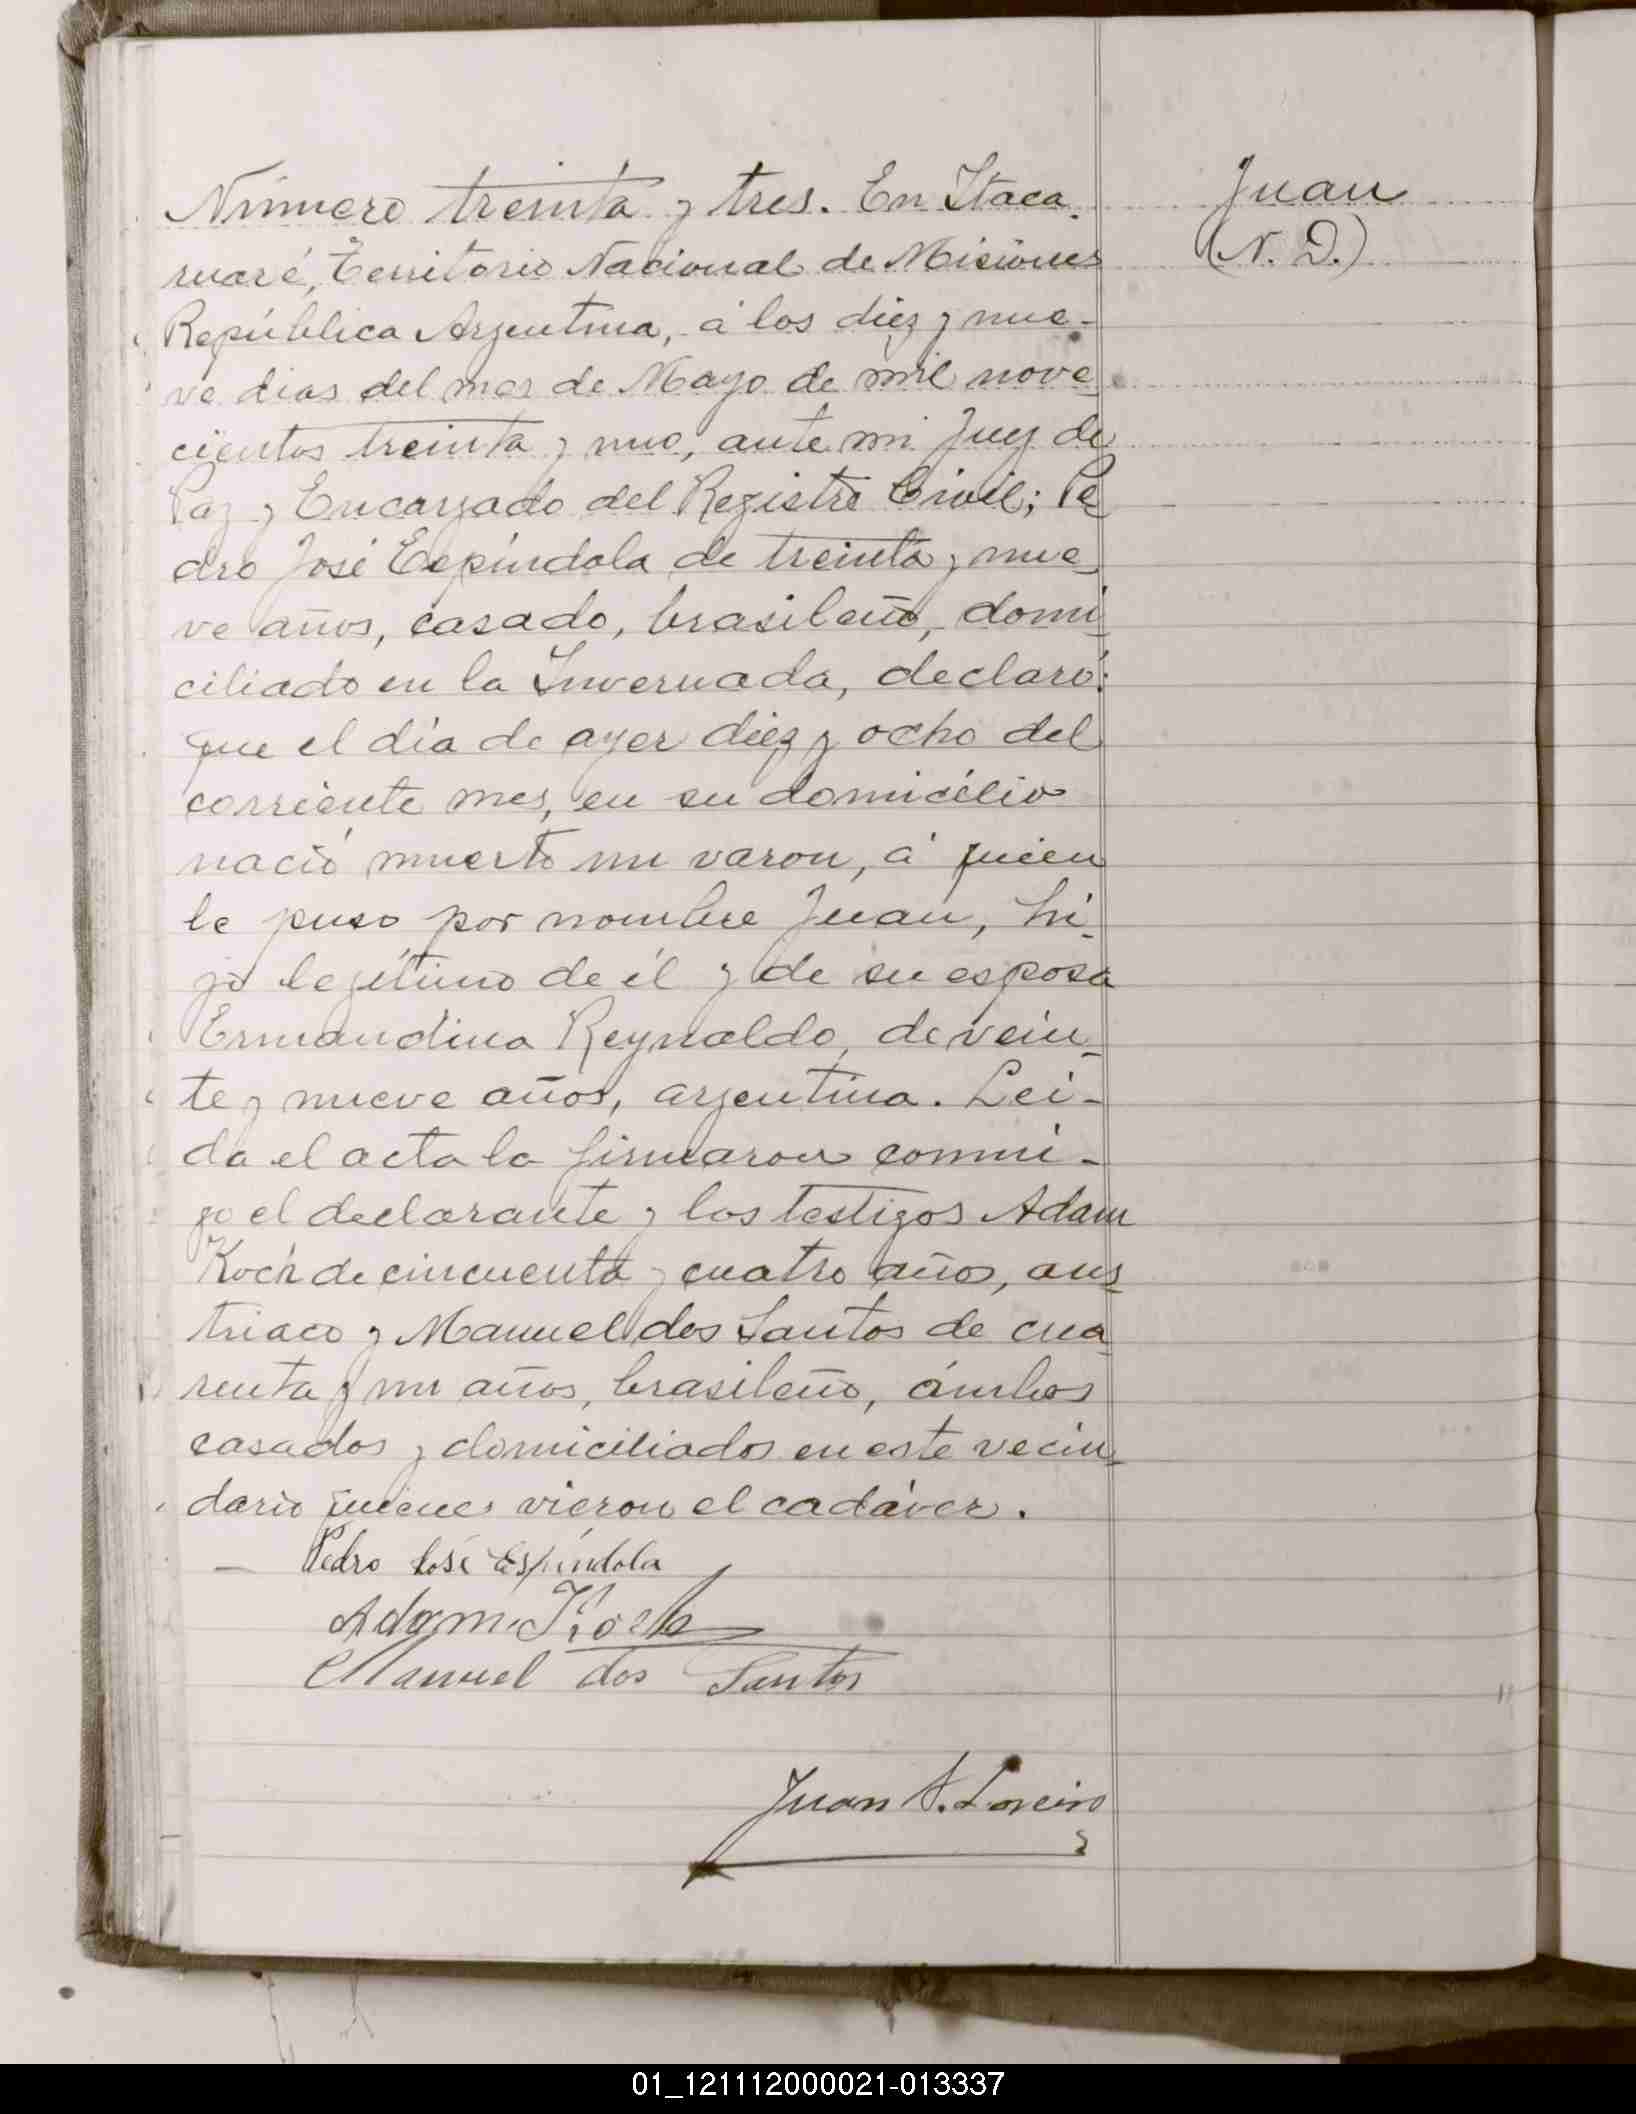 Número treinta y tres. En Itaca-
ruaré, Territorio Nacional de Misiones
República Argentina, á los diez y nue-
ve dias del mes de Mayo de mil nove-
cientos treinta y uno, ante mi Juez de
Paz y Encargado del Registro Civil; Pe-
dro José Espíndola de treinta y nue-
ve años, casado, brasileño, domi-
ciliado en la Invernada, declaró:
que el día de ayer diez y ocho del
corriente mes, en su domicilio
nació muerto un varon, á quien
le puso por nombre Juan, hi-
jo legítimo de él y de su esposa
Ermandina Reynaldo, de vein-
te y nueve años, argentina. Lei-
da el acta la firmaron conmi-
go el declarante y los testigos Adam
Koch de cincuenta y cuatro años, aus-
triaco y Manuel dos Santos de cua-
renta y un años, brasileño, ámbos
casados y domiciliados en este vecin-
dario quienes vieron el cadáver.
Pedro José Espíndola
Adam Koch
Manuel dos Santos
Juan A. Loreiro
Juan
(N. D.)
01_121112000021-013337